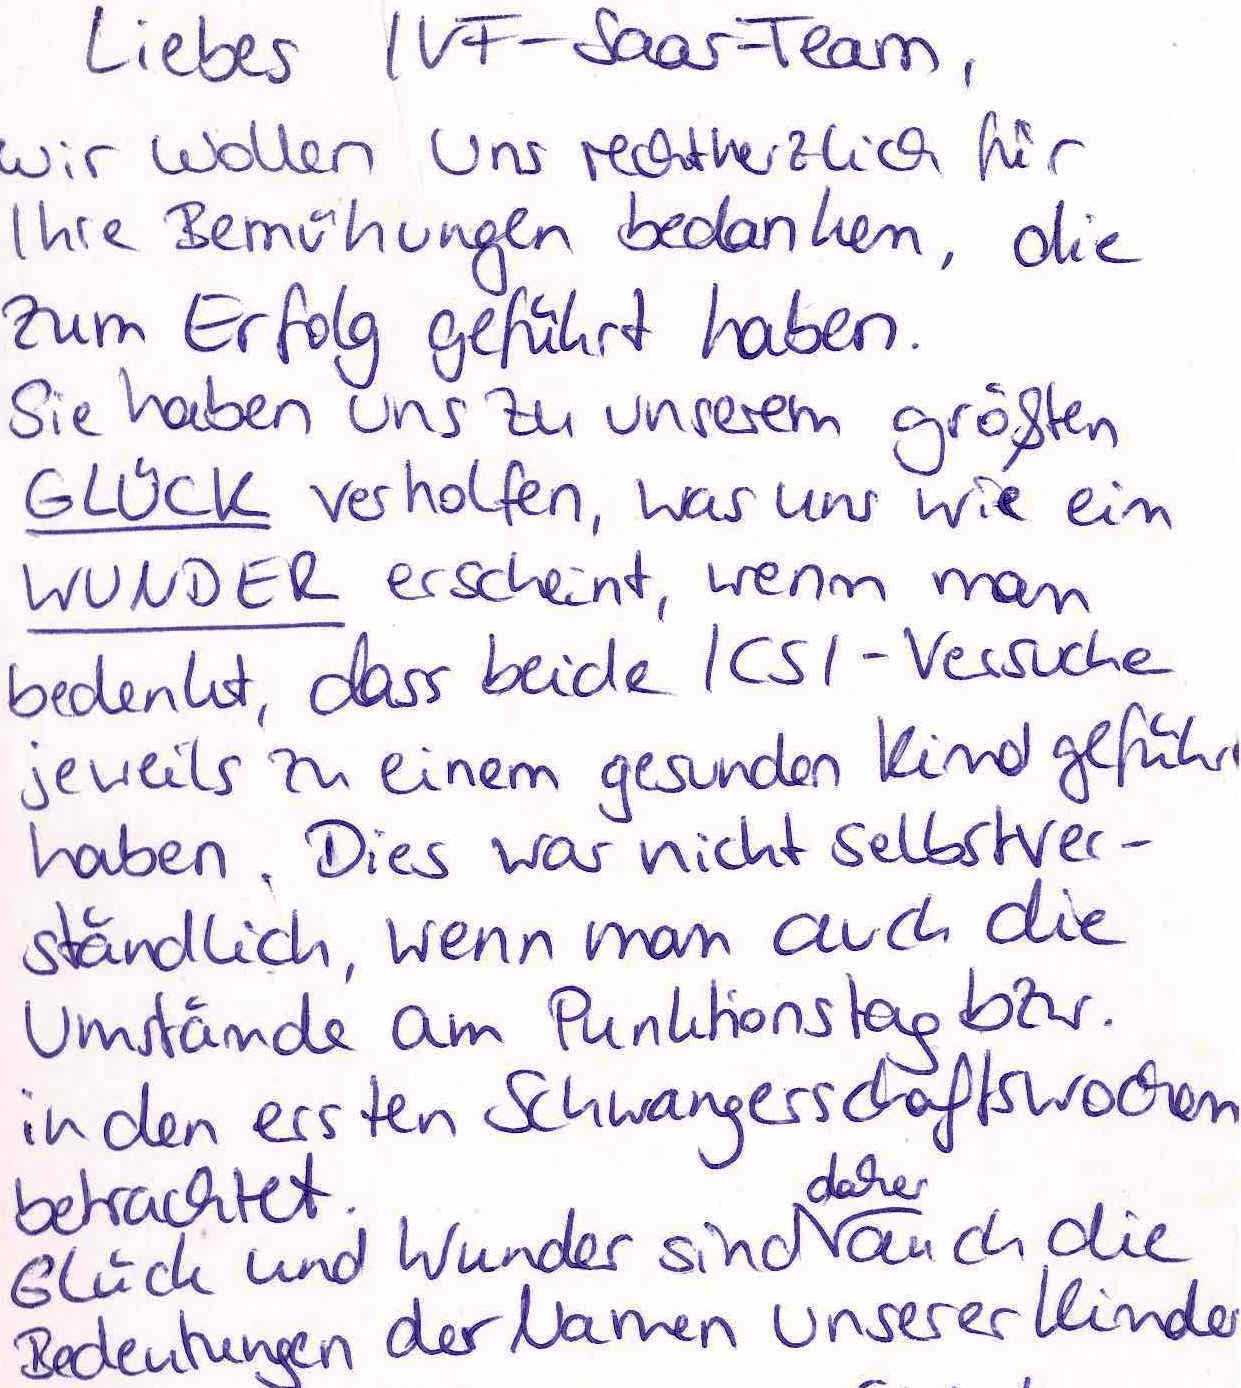 Liebes IVF-Saar-Team,
wir wollen uns rechtherzlich für
Ihre Bemühungen bedanken, die
zum Erfolg geführt haben.
Sie haben uns zu unserem größten
GLÜCK verholfen, was uns wie ein
WUNDER erscheint, wenn man
bedenkt, dass beide ICSI-Versuche
jeweils zu einem gesunden Kind geführ
haben. Dies war nicht selbstver-
ständlich, wenn man auch die
Umstände am Punktionstag bzw.
in den ersten Schwangersschaftswochen
betrachtet.
daher
Glück und Wunder sind auch die
Bedeutungen der Namen unserer Kinder